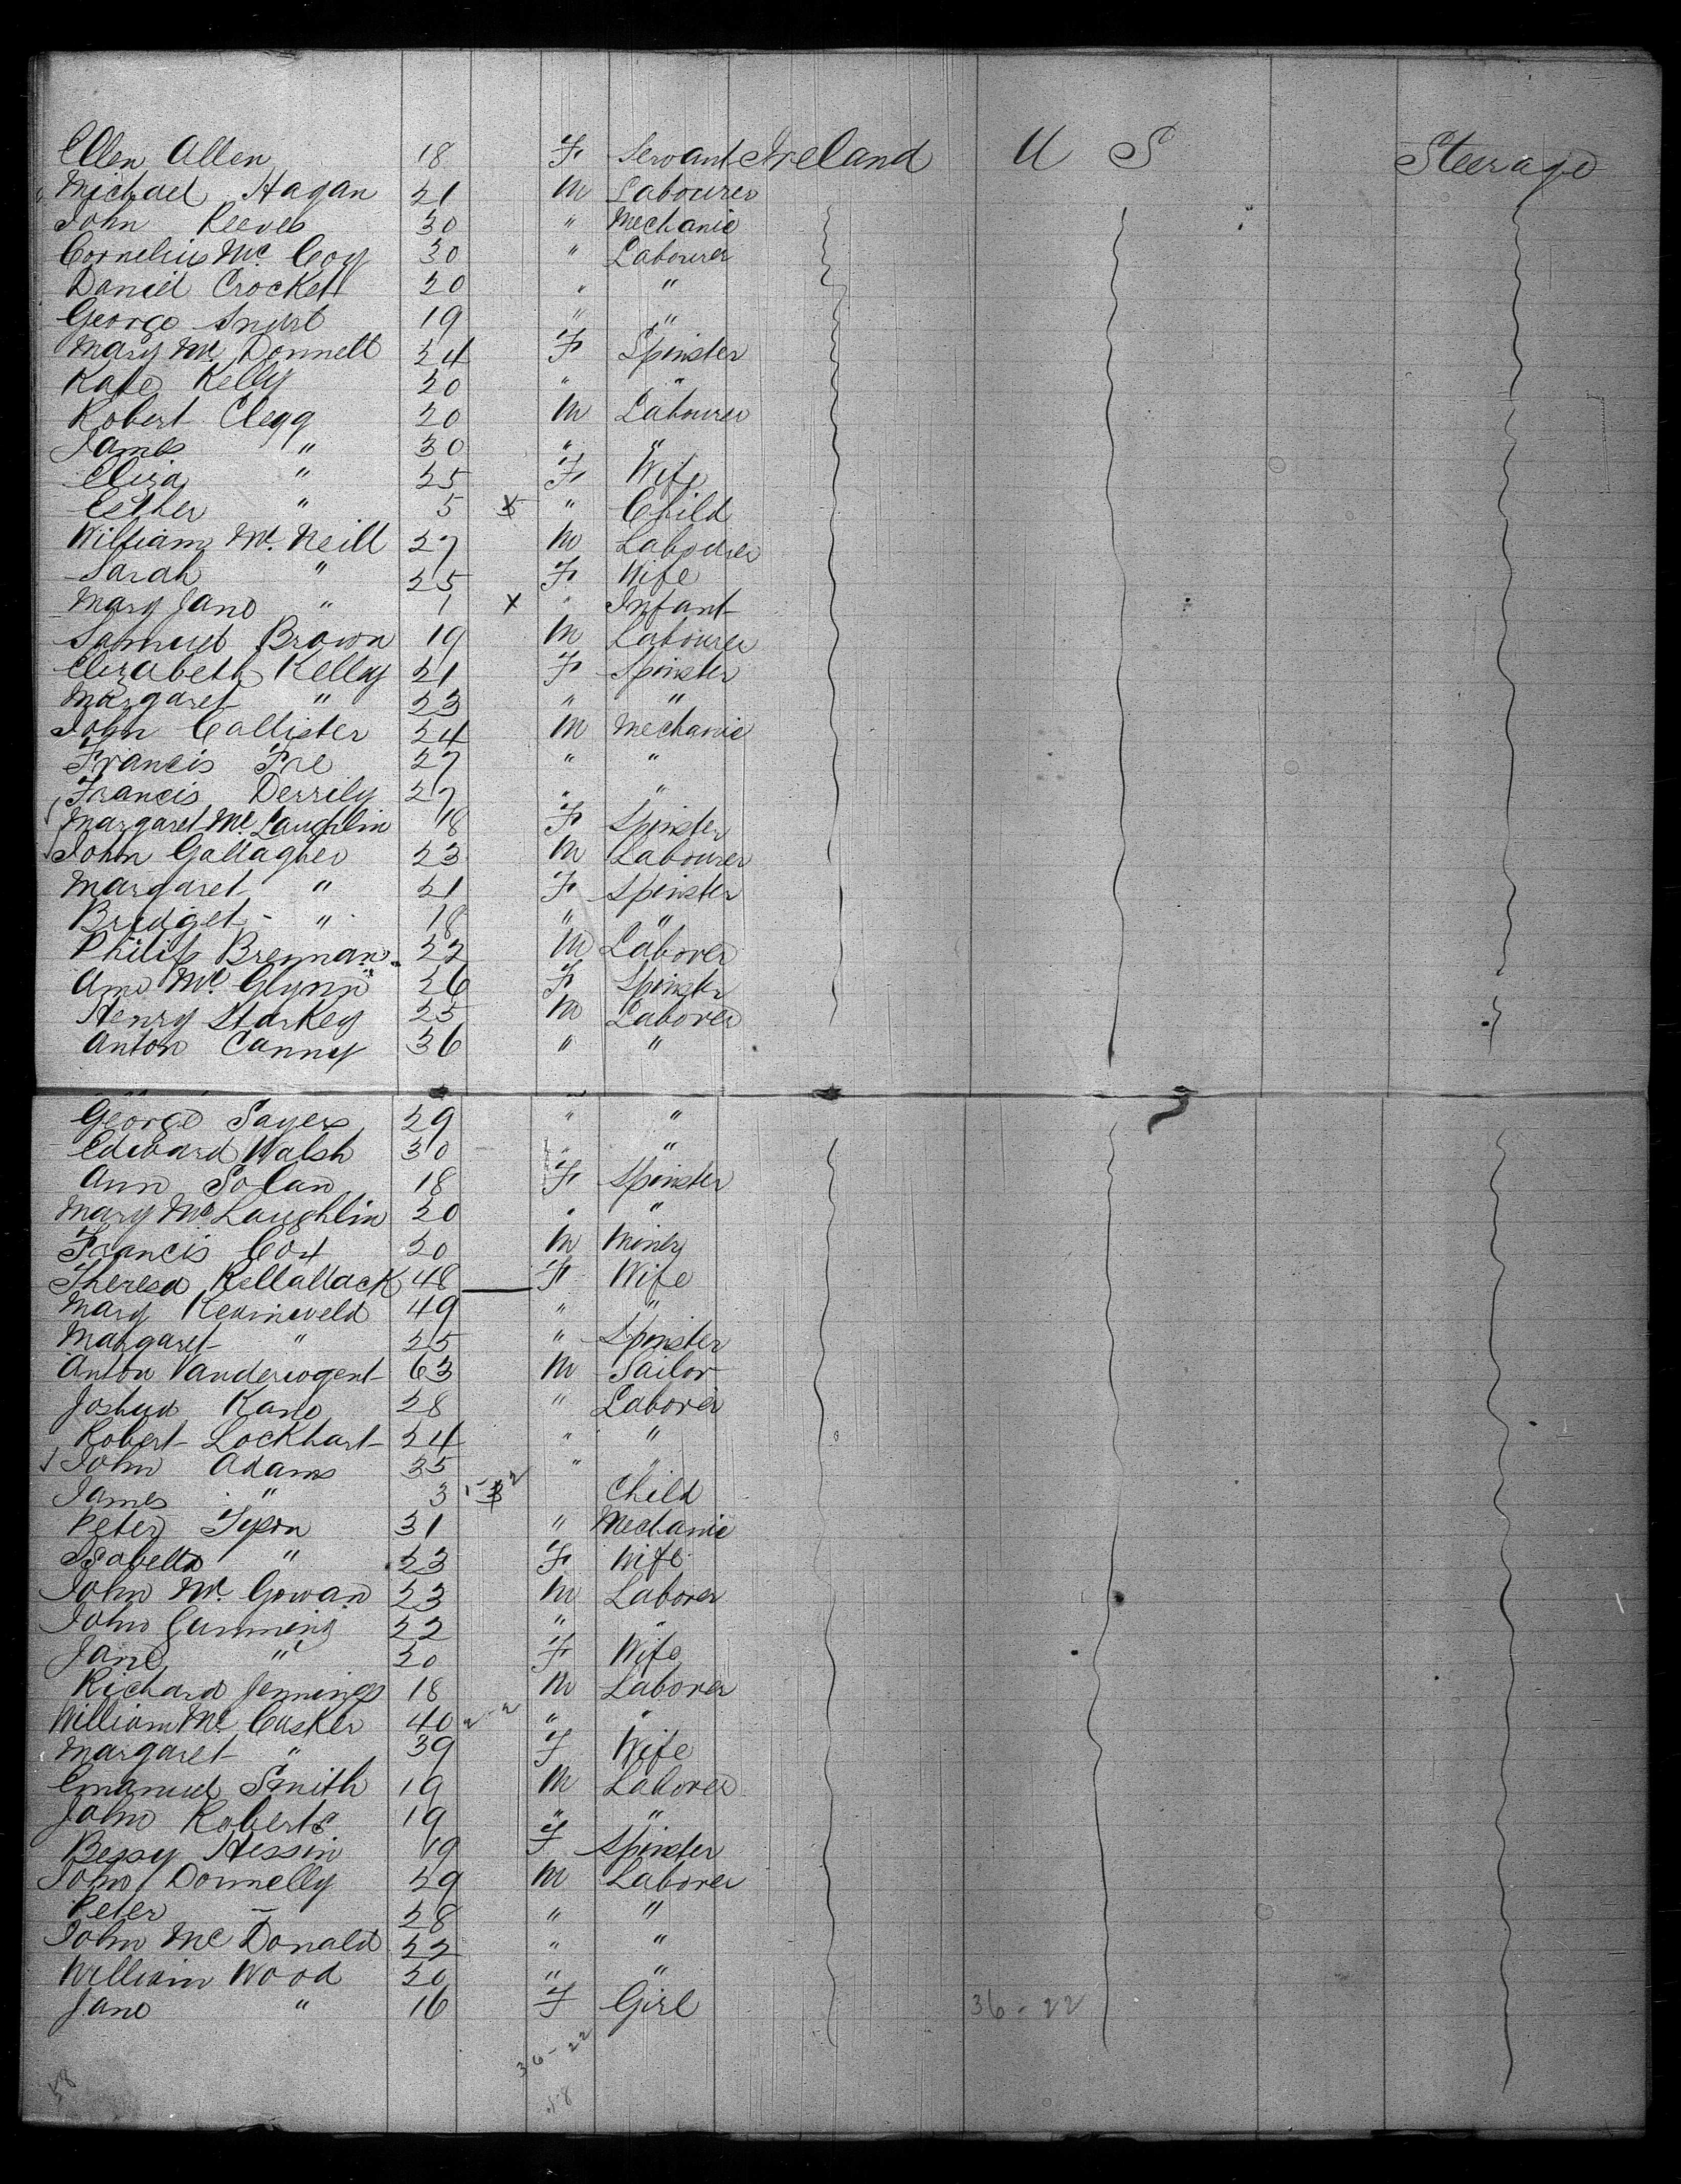 Ellen Allen 18 F Servant Ireland U S Steerage
Michael Hagan 21 M Labourer
John Reeves 30 " Mechanic
Cornelius Mc Coy 30 " Labourer
Daniel Crockett 20 " "
George 19 " "
Mary Mc Donnell 24 F Spinster
Kate Kelly 20 " "
Robert Clegg 20 M Labourer
James " 30 " "
Eliza " 25 F Wife
Esther " 5 " Child
William Mc Neill 27 M Labourer
Sarah " 25 F Wife
Mary Jane " 1 x " Infant
Samuel Brown 19 M Labourer
Elizabeth Kelly 21 F Spinster
Margaret " 23 " "
John Callister 24 M Mechanic
Francis 27 " "
Francis Derrily 27 " "
Margaret Mc Laughlin 18 F Spinster
John Gallagher 23 M Labourer
Margaret " 21 F Spinster
Bridget " 18 " "
Philip Brennan 22 M Laborer
Ann Mc Glynn 26 F Spinster
Henry Starkey 25 M Laborer
Anton Canny 36 " "
George Sayers 29 " "
Edward Walsh 30 " "
Ann Solan 18 F Spinster
Mary Mc Laughlin 20 " "
Francis Cox 20 M Miner
Theresa Rellallack 48 F Wife
Mary 49 " "
Margaret " 25 " Spinster
Anton Vanderwogent 63 M Sailor
Joshua Kane 28 " Laborer
Robert Lockhart 24 " "
John Adams 35 " "
James " 3 Child
Peter 31 " Mechanic
Isabella " 23 F Wife
John Mc Gowan 23 M Laborer
John 22 " "
Jane " 20 F Wife
Richard Jennings 18 M Laborer
William Mc Cusker 40 2-2 " "
Margaret " 39 F Wife
Emanuel Smith 19 M Laborer
John Roberts 19 " "
Bessy Hessin 19 F Spinster
John Donnelly 29 M Laborer
Peter — 28 " "
John Mc Donald 22 " "
William Wood 20 " "
Jane " 16 F Girl 36-22
36-22
58 58